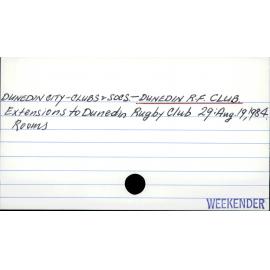 DUNEDIN CITY-CLUBS & SOCS.- DUNEDIN R.F. CLUB.
Extensions to Dunedin Rugby Club 29:Aug.19,1984.
Rooms
WEEKENDER